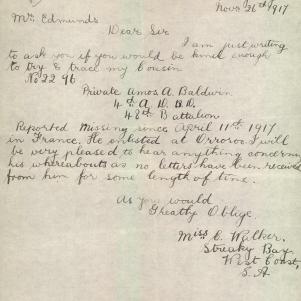 Nov 26th 1917
Mr Edmunds
Dear Sir
I am just writing
to ask you if you would be kind enough
to try & trace my cousin
No 2296
Private Amos A. Baldwin
4th A. D. B. D.
48th Battalion
Reported Missing since April 11th 1917
in France. He enlisted at Orroroo I will
be very pleased to hear anything concerning
his whereabouts as no letters have been received
from him for some length of time.
As you would
Greatly Oblige
Miss C. Walker.
Streaky Bay
West Coast,
S. A